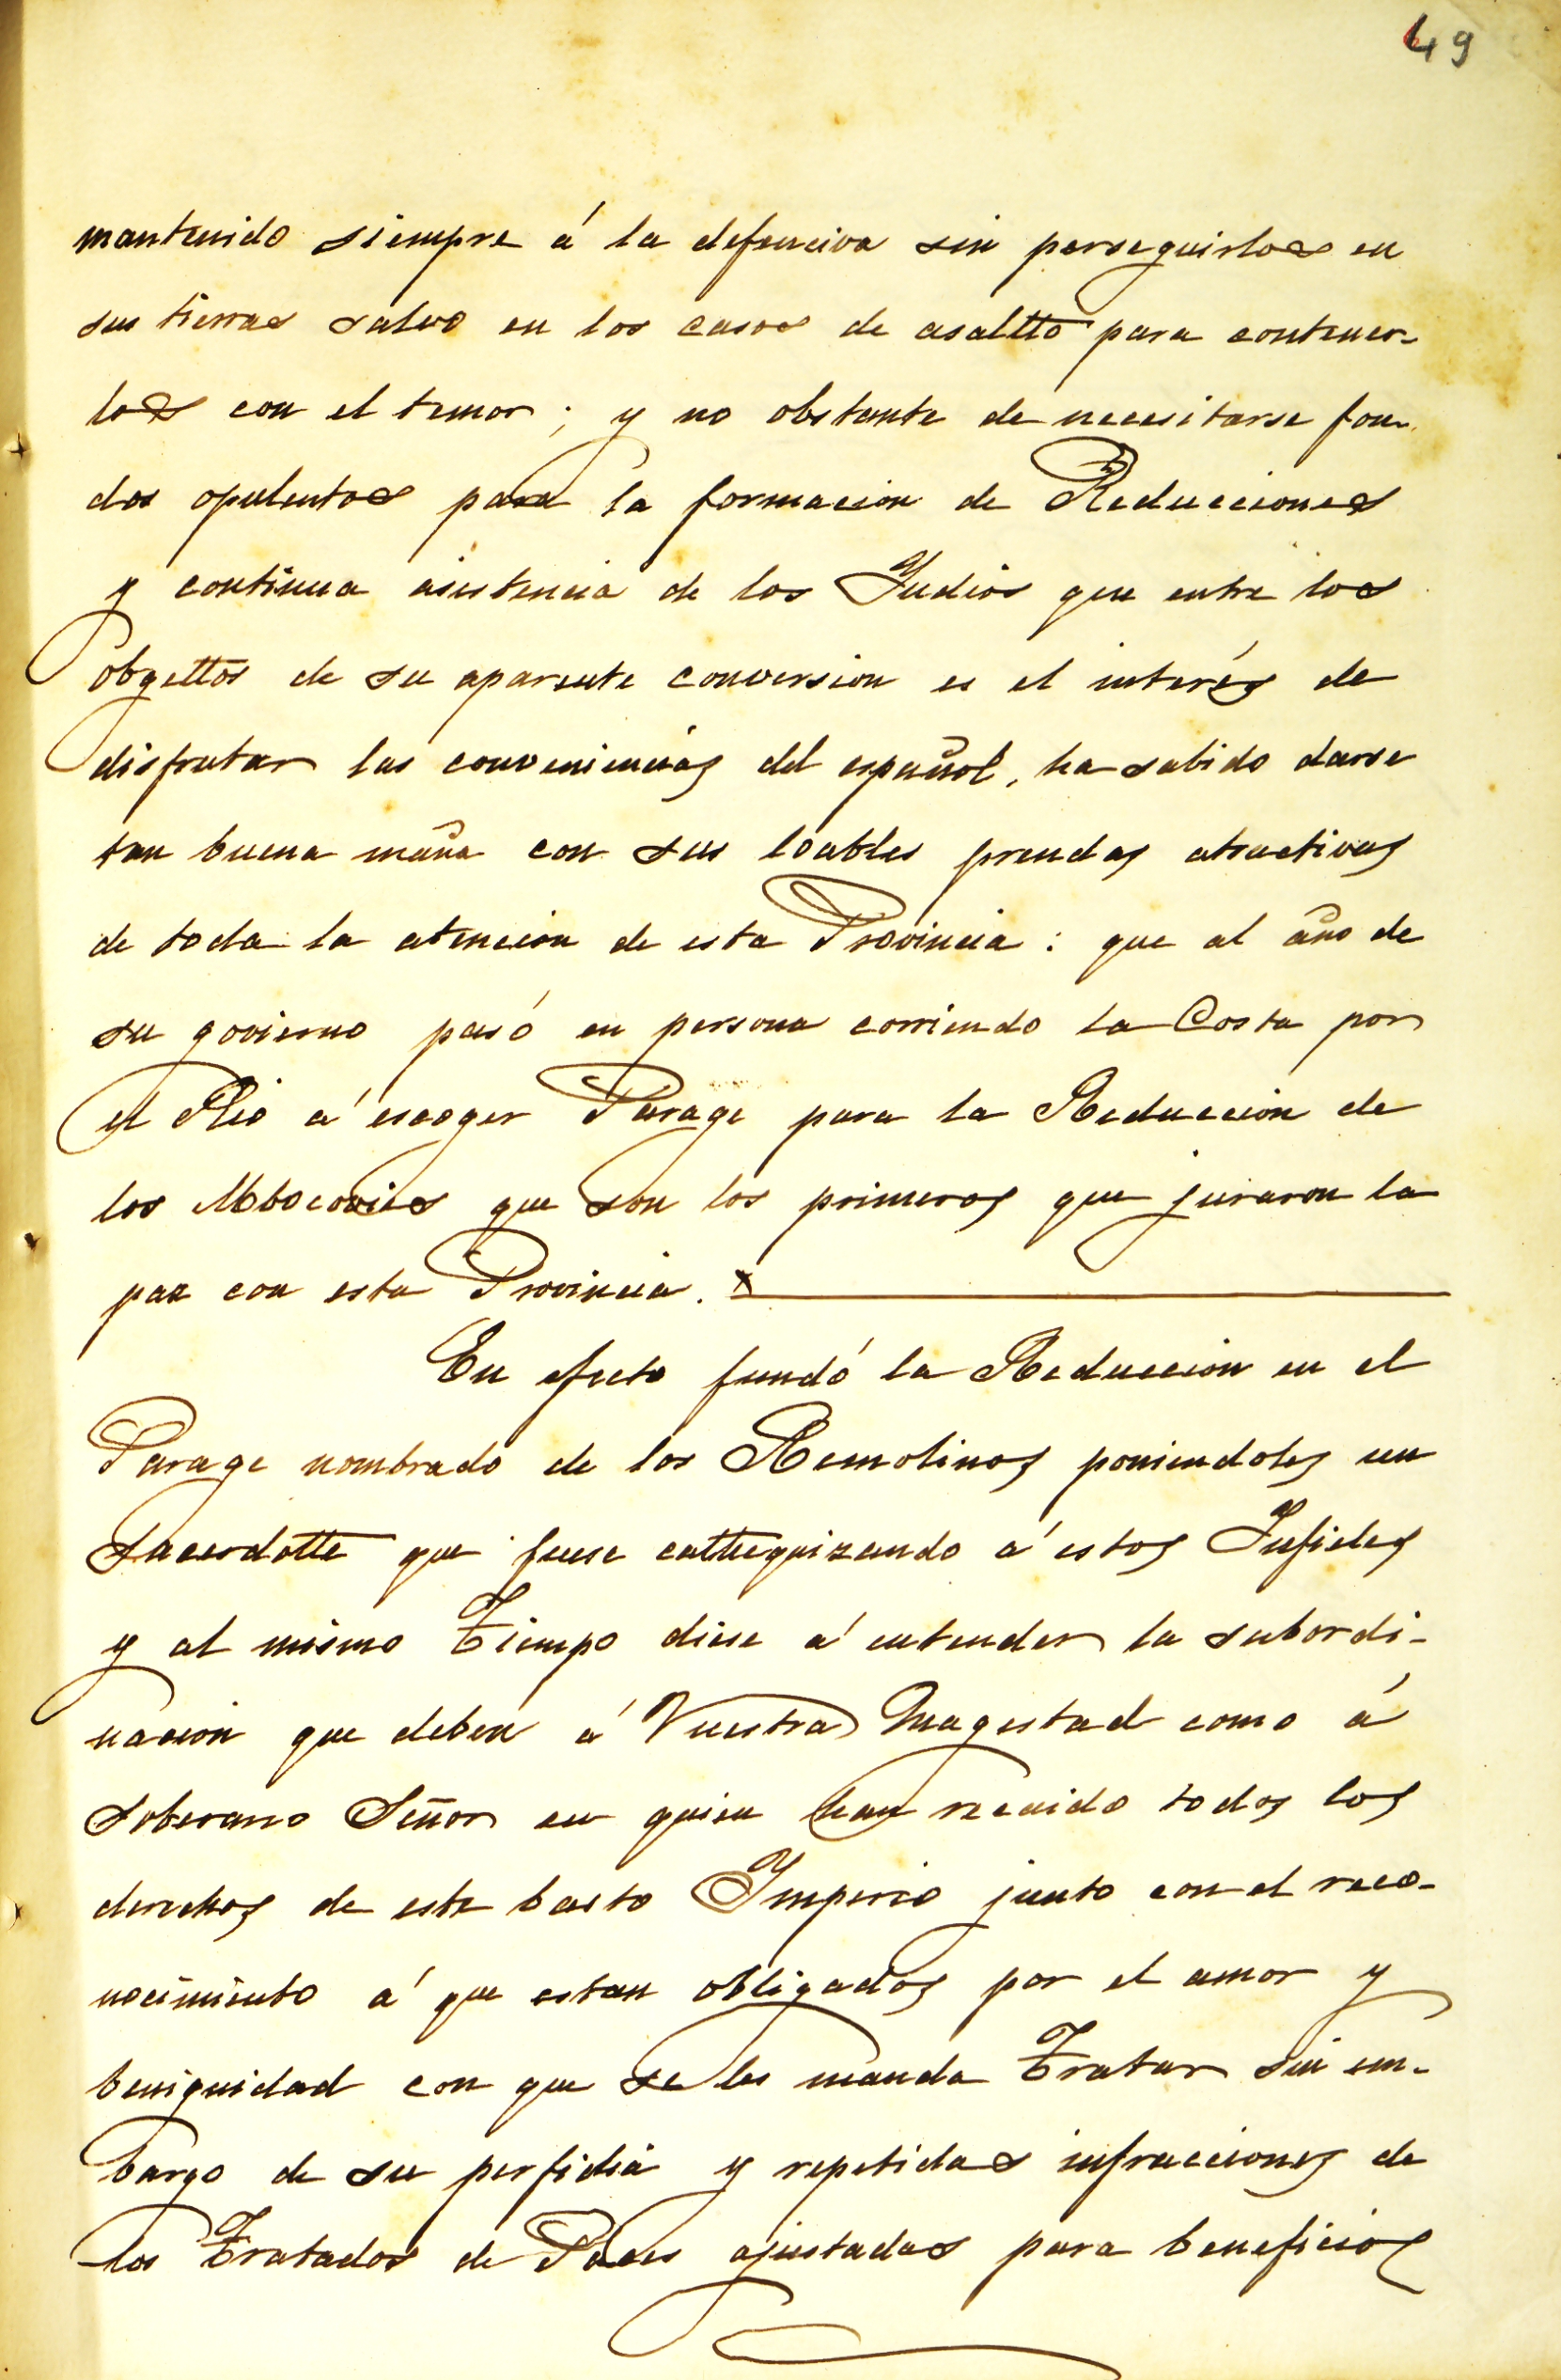 49
mantenido siempre á la defenciva sin perseguirlos en
sus tierras salvo en los casos de asaltto para contener-
los con el temor; y no obstante de necesitarse fon-
dos opulentos para la formacion de Reducciones
y continua asistencia de los Indios que entre los
obgettos de su aparente conversion es el interés de
disfrutar las conveniencias del español, ha sabido darse
tan buena maña con sus loables prendas atractivas
de toda la atencion de esta Provincia: que al año de
su govierno pasó en persona corriendo la Costa por
el Rio á escoger Parage para la Reduccion de
los Mbocovies que son los primeros que juraron la
paz con esta Provincia.
En efecto fundó la Reduccion en el
Parage nombrado de los Remolinos poniendoles un
Sacerdotte que fuese catthequizando á estos Infieles
y al mismo Tiempo diese á entender la subordi-
nacion que deben á Vuestra Magestad como á
Soberano Señor en quien han recaido todos los
derechos de este basto Imperio junto con el reco-
nocimiento á que estan obligados por el amor y
benignidad con que se les manda Tratar sin em-
bargo de su perfidia y repetidas infracciones de
los Tratados de Paces ajustadas para beneficios